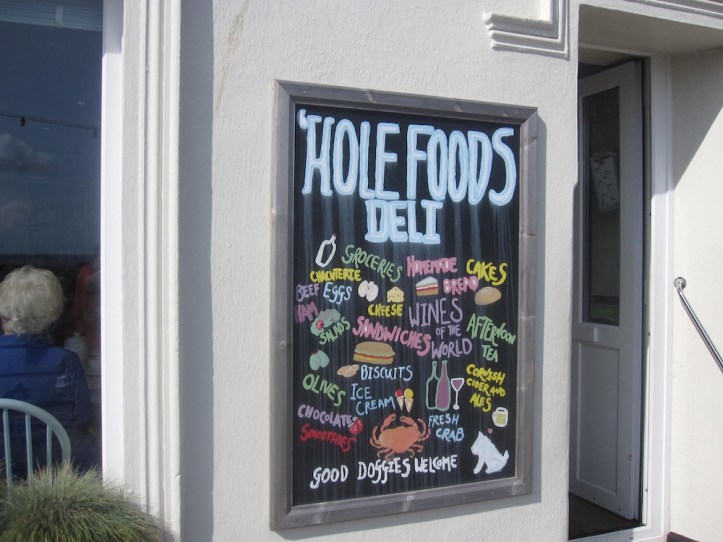 'HOLE FOODS
DELI
GROCERIES
HOMEMADE
CAKES
CHACUTERIE
BREAD
BEEF
EGGS
HAM
CHEESE
WINES
OF THE
WORLD
SALADS
SANDWICHES
AFTERNOON
TEA
BISCUITS
CORNISH
CIDER AND
ALES
OLIVES
ICE
CREAM
CHOCOLATES
FRESH
CRAB
SMOOTHIES
GOOD DOGGIES WELCOME